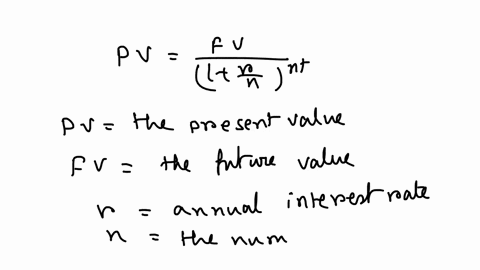 PV = FV / (1 + r/n)^nt
PV = the present value
FV = the future value
r = annual interest rate
n = the num